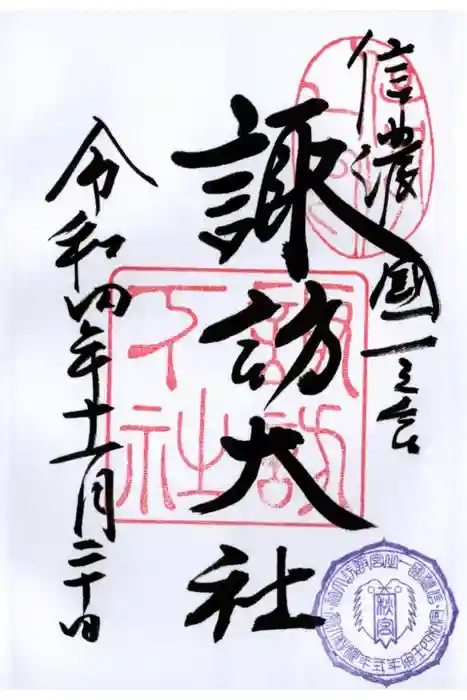 信濃國一之宮
諏訪大社
令和四年十一月二十日
諏訪
下社
秋宮